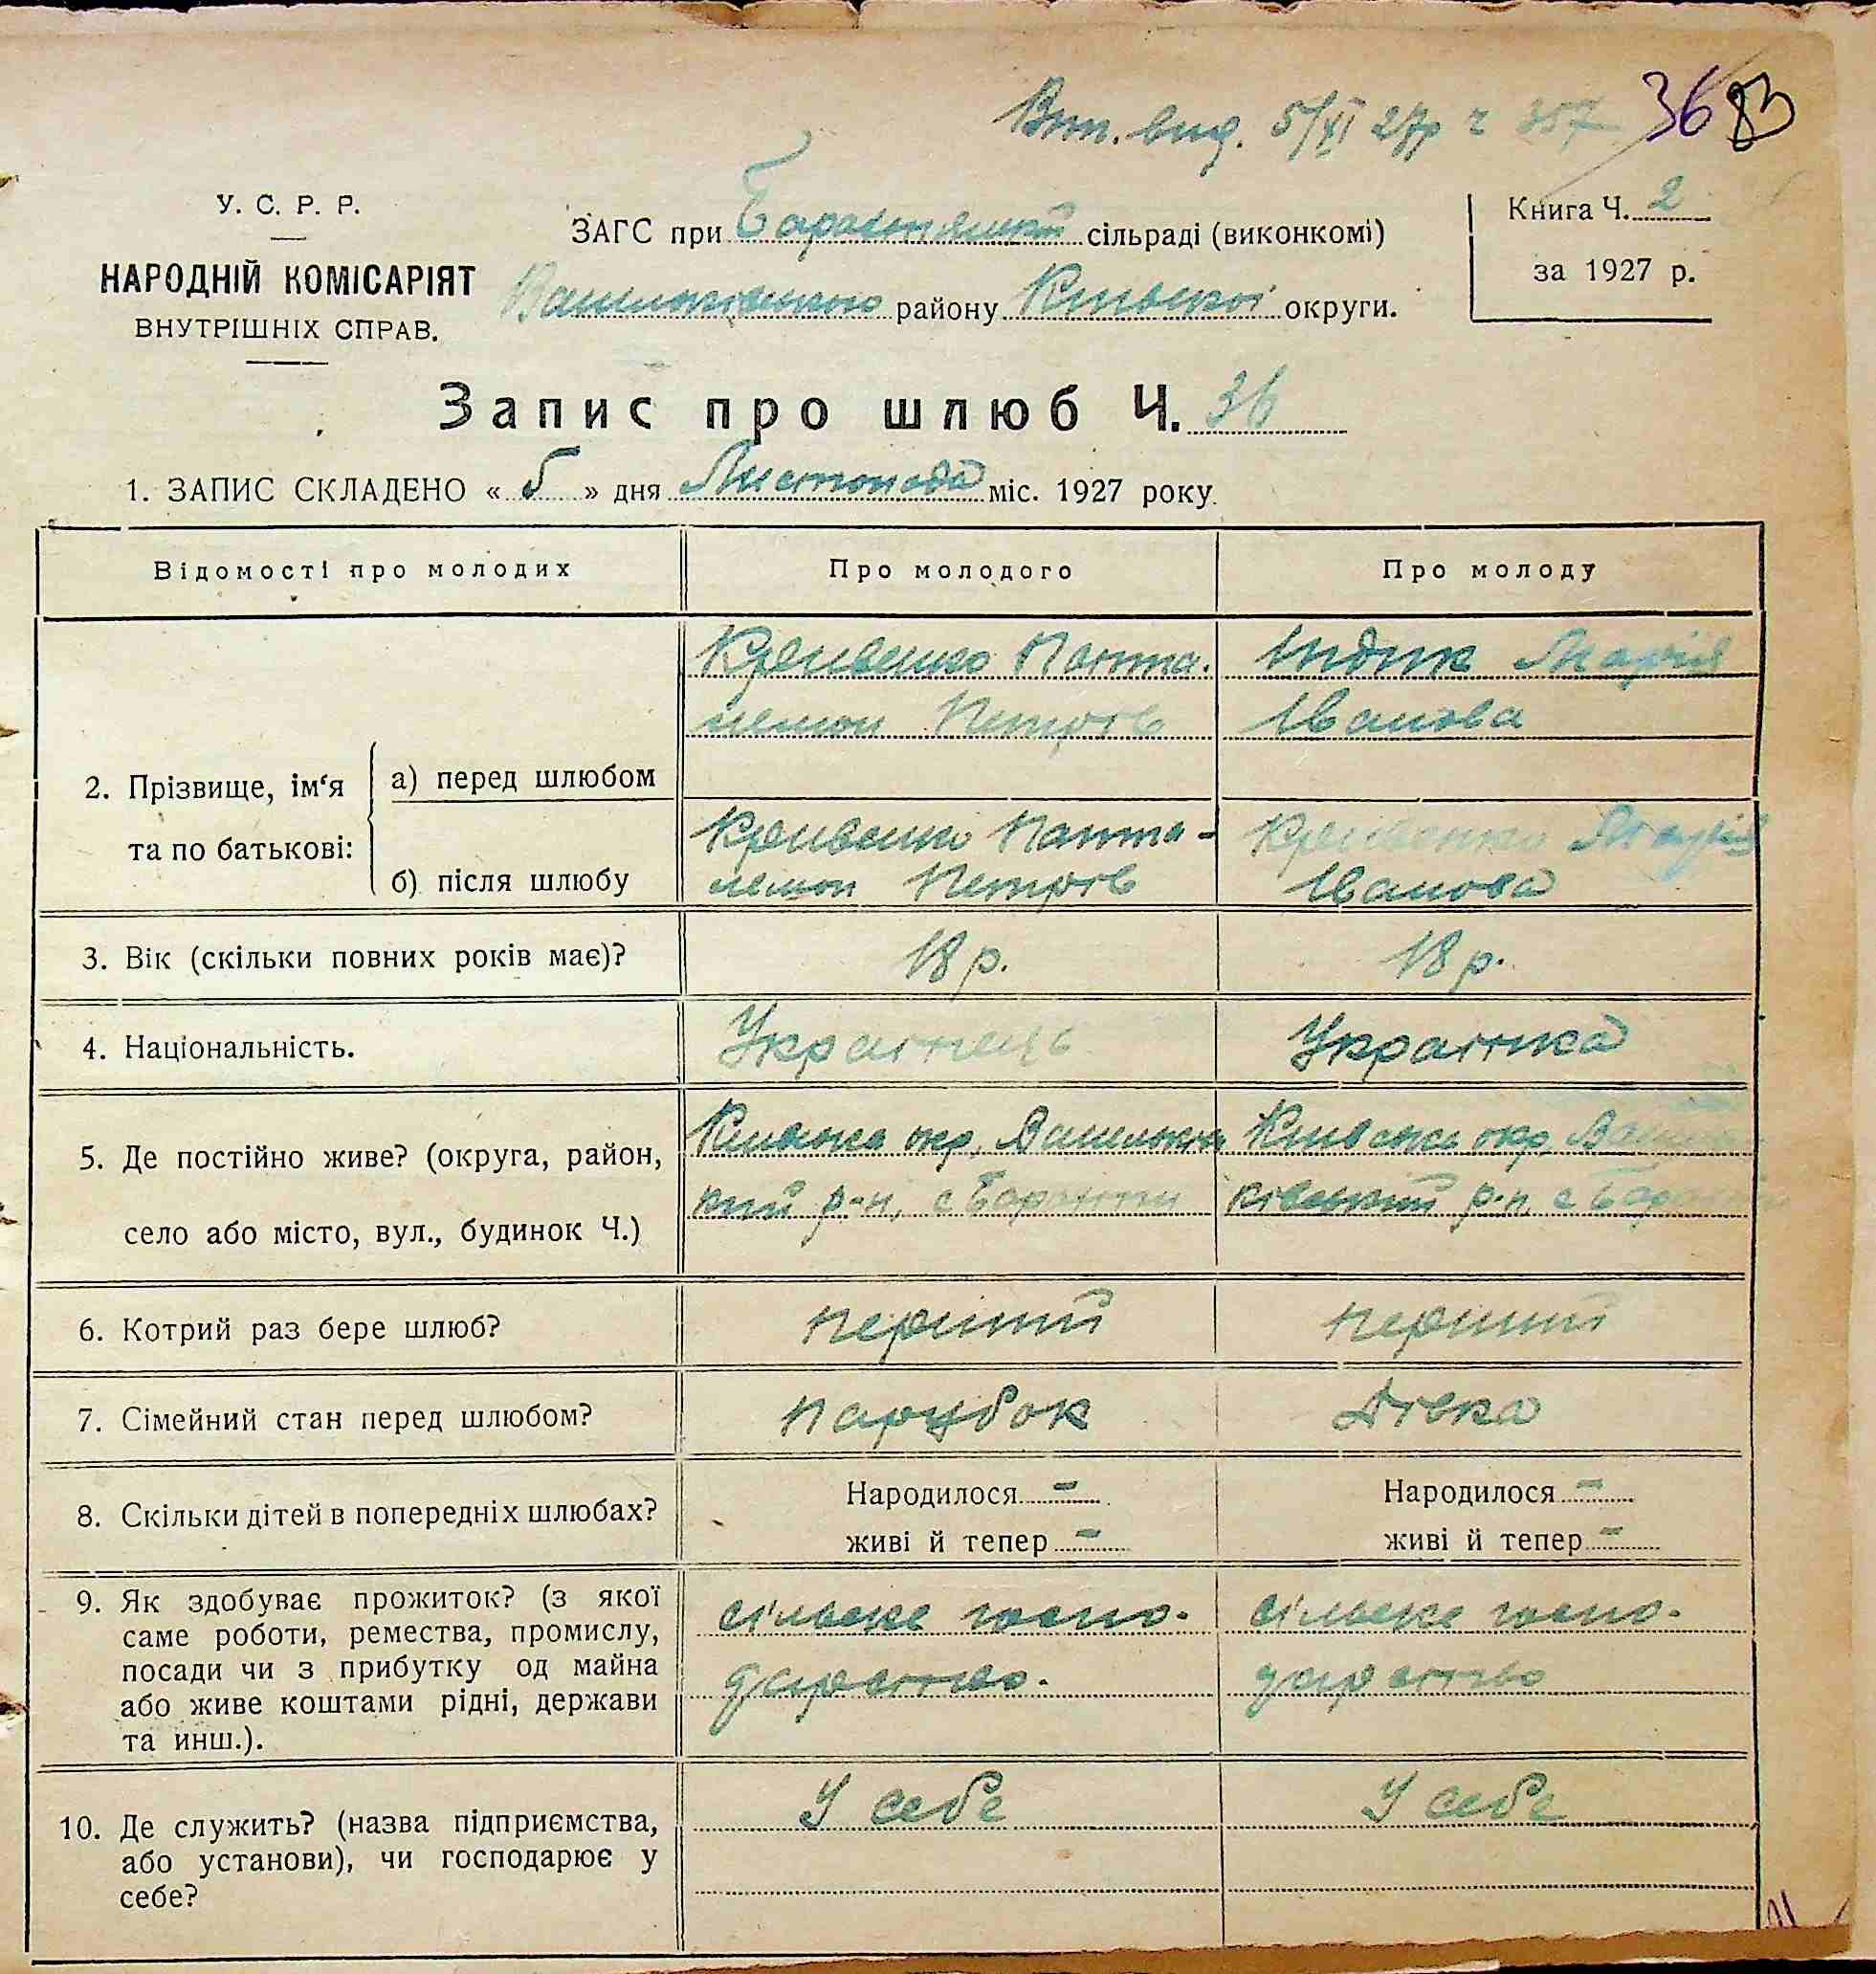 Вип. вид. 5/XI 27р ч 357 36 83
У. С. Р. Р.
НАРОДНІЙ КОМІСАРІЯТ
ВНУТРІШНІХ СПРАВ.
ЗАГС при сільраді (виконкомі)
району Київської округи.
Книга Ч. 2
за 1927 р.
Запис про шлюб Ч. 36
1. ЗАПИС СКЛАДЕНО « 5 » дня Листопада міс. 1927 року.
Відомості про молодих
Про молодого
Про молоду
2. Прізвище, ім'я та по батькові:
а) перед шлюбом
Кривенко Панта-
лемон Петрів
Індик Марія
Іванова
б) після шлюбу
Кривенко Панта-
лемон Петрів
Кривенко Марія
Іванова
3. Вік (скільки повних років має)?
18 р.
18 р.
4. Національність.
Українець
Українка
5. Де постійно живе? (округа, район,
село або місто, вул., будинок Ч.)
Київська окр,
кий р-н, с
Київська окр,
ківський р-н, с
6. Котрий раз бере шлюб?
перший
перший
7. Сімейний стан перед шлюбом?
парубок
Дівка
8. Скільки дітей в попередніх шлюбах?
Народилося -
живі й тепер -
Народилося -
живі й тепер -
9. Як здобуває прожиток? (з якої
саме роботи, ремества, промислу,
посади чи з прибутку од майна
або живе коштами рідні, держави
та инш.).
сільське госпо-
дарство.
сільське госпо-
дарство
10. Де служить? (назва підприємства,
або установи), чи господарює у
себе?
У себе
У себе